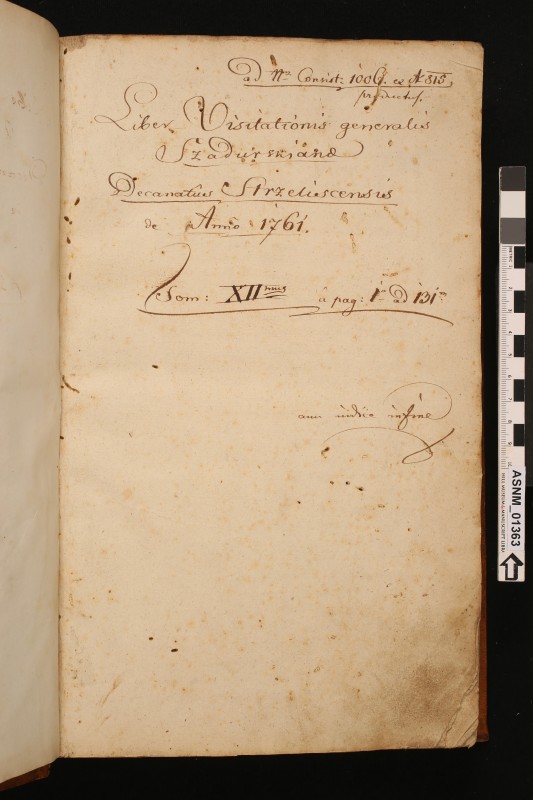 ad Nrm Consist: 1006. ex A 815
productus.
Liber Visitationis generalis
Szadurskianæ
Decanatus Strzeliscensis
de Anno 1761.
Tom: XIImus à pag: 1a ad 131
cum indice in fine
ASNM_01363